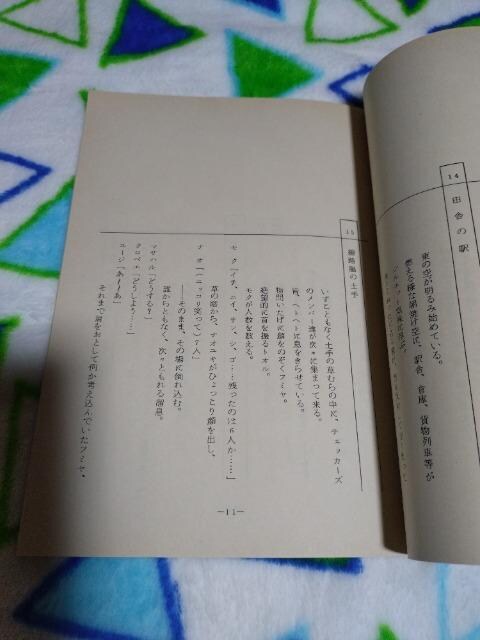 14
田舎の駅
東の空が明るみ始めている。
燃える様な朝焼け空に、駅舎、倉庫、貨物列車等が
15
線路脇の土手
いずこともなく土手の草むらの中に、チェッカーズ
のメンバー達が次々に集まって来る。
皆、ヘトヘトに息をきらせている。
物問いたげに顔をのぞくフミヤ。
絶望的に首を振るトオル。
モクが人数を数える。
モク「イチ、ニイ、サン、シ、ゴ……残ったのは6人か……」
草の蔭から、ナオユキがひょっこり顔を出し、
ナオ「(ニッコリ笑って)7人」
――そのまま、その場に倒れ込む。
誰からともなく、次々ともれる溜息。
マサハル「どうする?」
クロベエ「どうしよう……」
ユージ「あーーあ」
それまで肩をおとして何か考え込んでいたフミヤ。
—11—